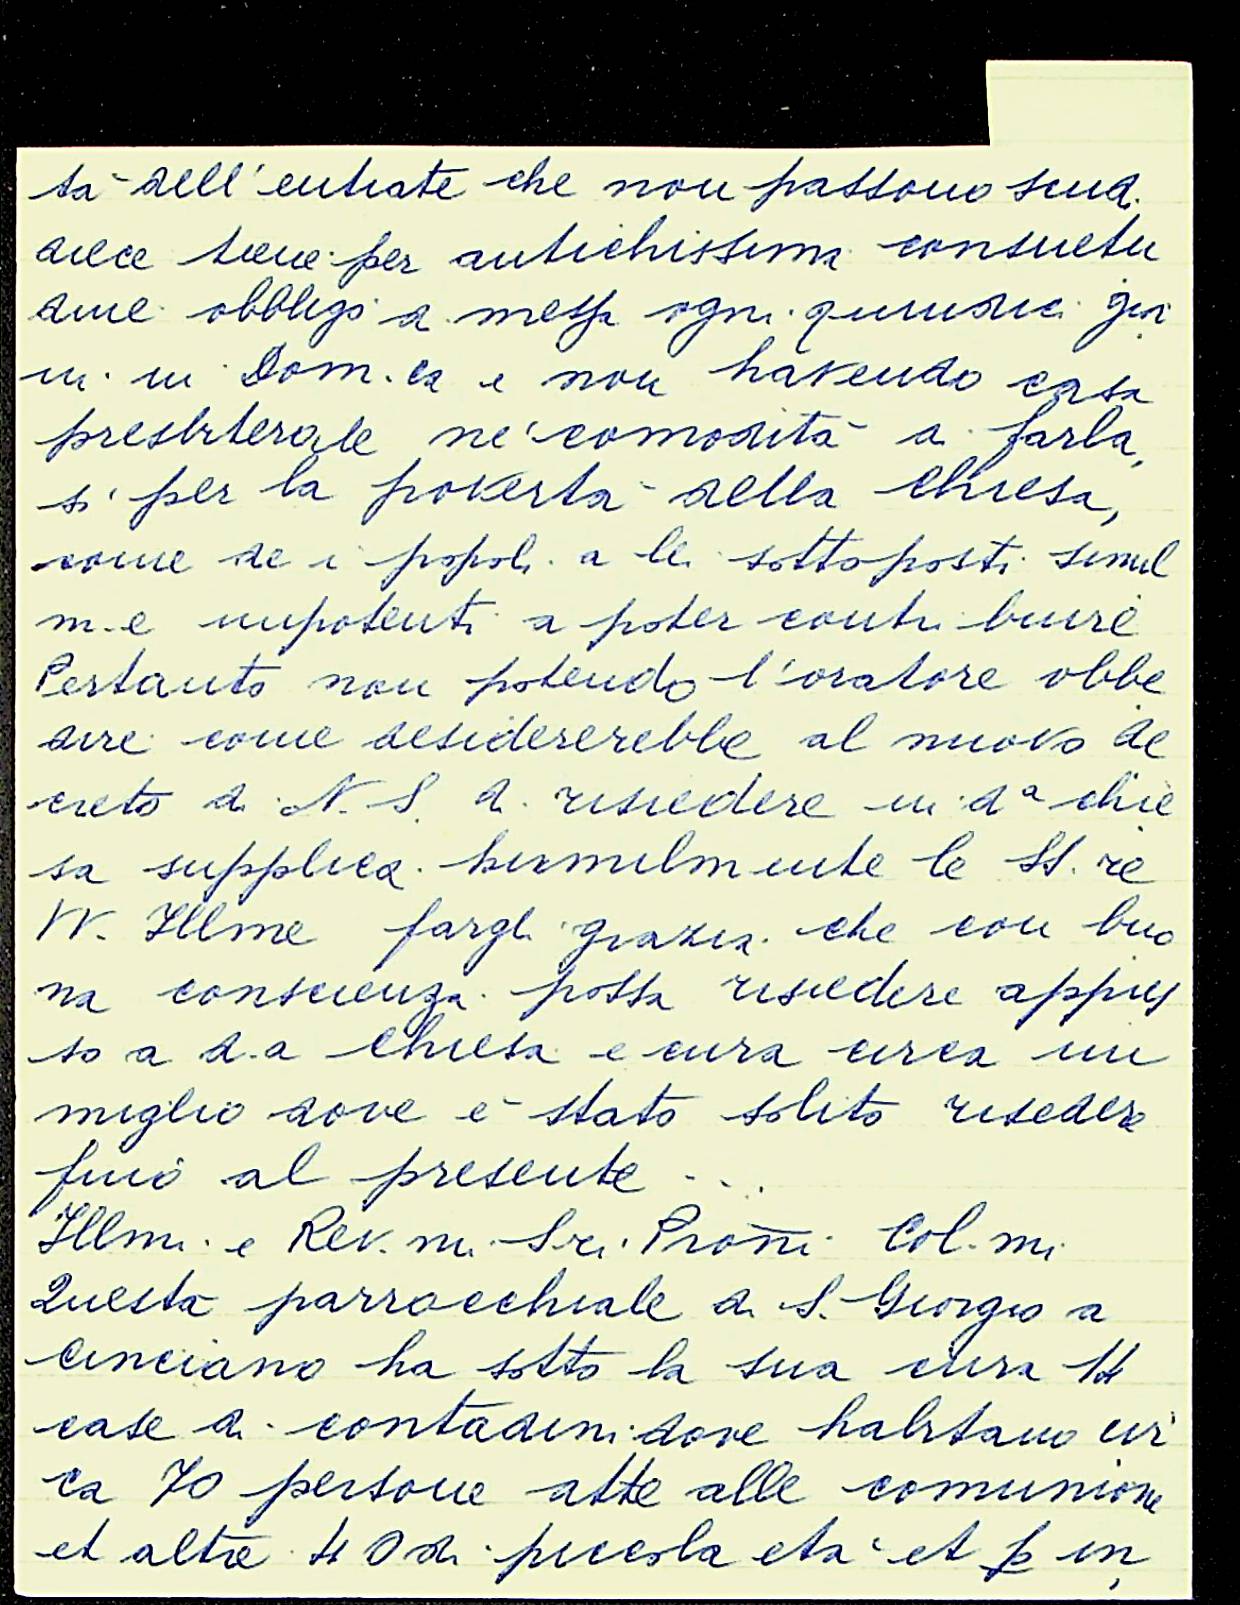 tà dell'entrate che non passono scud.
diece tiene per antichissima consuetu
dine obbligo di messa ogni quindici gior
ni in Dom.ca e non havendo casa
presbiterale ne' comodità di farla,
sì per la povertà della Chiesa,
come de i popoli a lei sottoposti simil
m.e impotenti a poter contribuire
Pertanto non potendo l'oratore obbe
dire come desidererebbe al nuovo de
creto di N. S. di risiedere in d.a chie
sa supplica humilmente le SS.rie
VV. Illme fargli grazia che con buo
na conscienza possa risiedere appres
so a d.a Chiesa e cura circa un
miglio dove è stato solito risedere
fino al presente ...
Illmi e Rev.mi Sri. Proñi Col.mi
Questa parrocchiale di S. Giorgio a
Cinciano ha sotto la sua cura 14
case di contadini dove habitano cir
ca 70 persone atte alle comunione
et altre 40 di piccola età et p in,